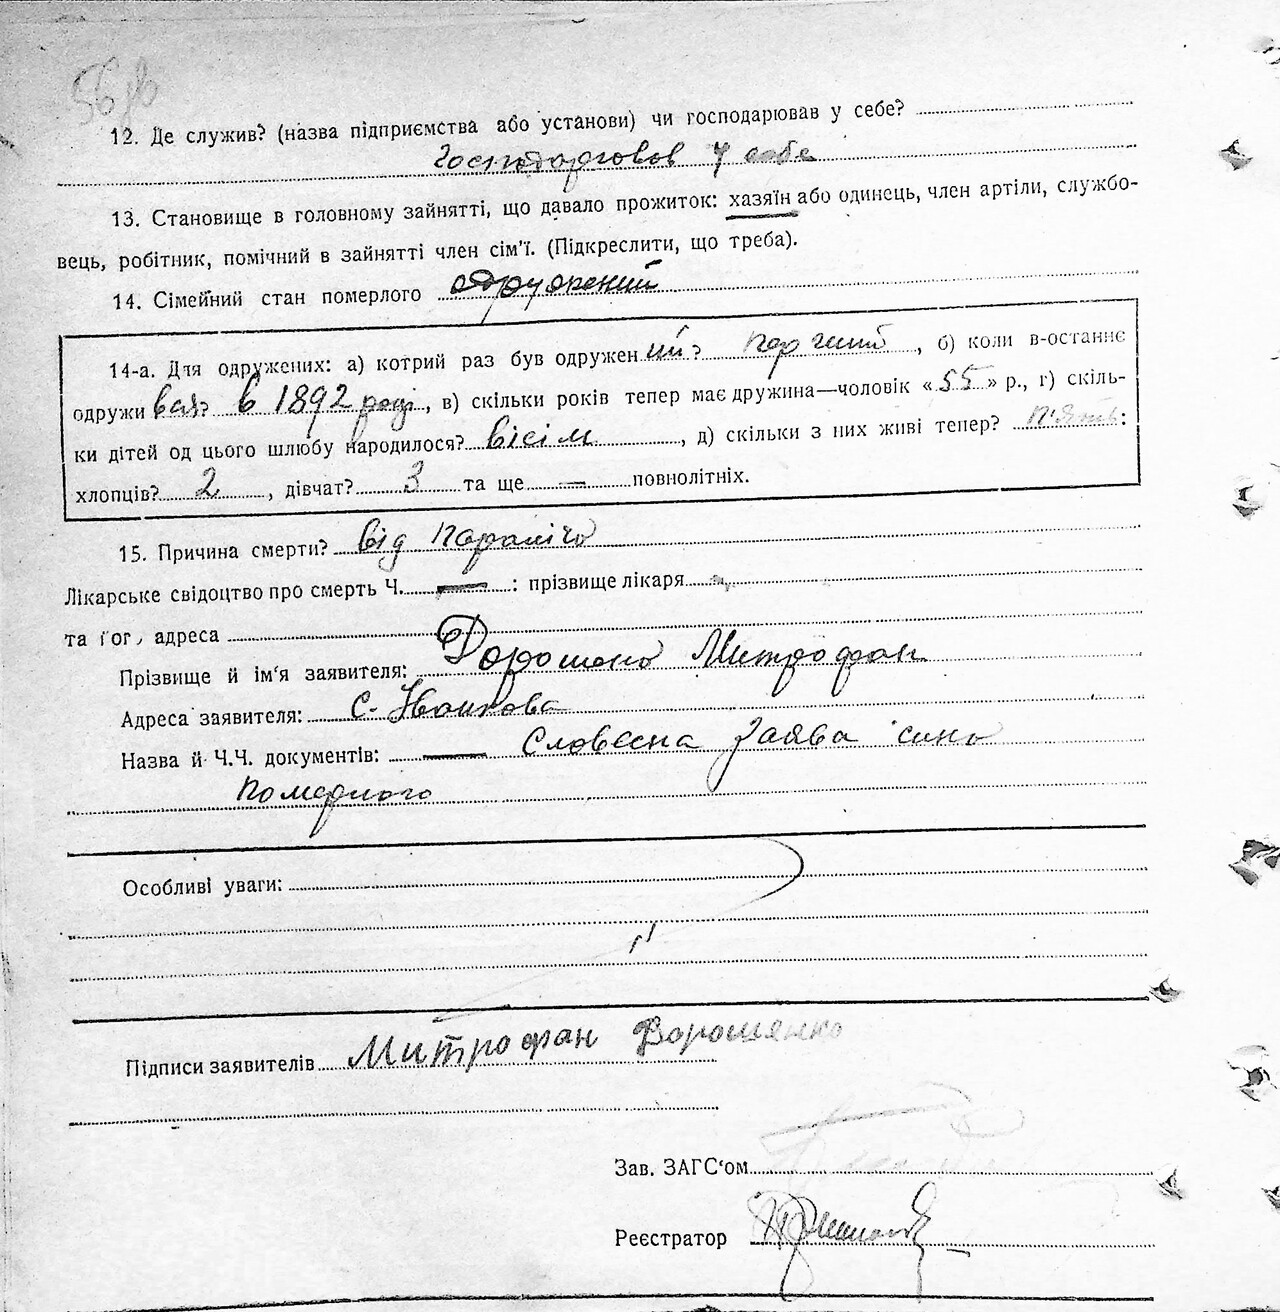 56
12. Де служив? (назва підприємства або установи) чи господарював у себе?
Господарював у себе
13. Становище в головному зайнятті, що давало прожиток: хазяїн або одинець, член артіли, службо-
вець, робітник, помічний в зайнятті член сім'ї. (Підкреслити, що треба).
14. Сімейний стан померлого одружений
14-а. Для одружених: а) котрий раз був одружен ий? перший, б) коли в-останнє
одружи вся? в 1892 році, в) скільки років тепер має дружина—чоловік «55» р., г) скіль-
ки дітей од цього шлюбу народилося? вісім, д) скільки з них живі тепер? п'ять:
хлопців? 2, дівчат? 3 та ще — повнолітніх.
15. Причина смерти? від параліча
Лікарське свідоцтво про смерть Ч. —: прізвище лікаря
та його адреса
Прізвище й ім'я заявителя: Дорошенко Митрофан
Адреса заявителя: с. Іванкова
Назва й Ч.Ч. документів: — Словесна заява сина
померлого
Особливі уваги:
Підписи заявителів Митрофан Дорошенко
Зав. ЗАГС'ом
Реєстратор